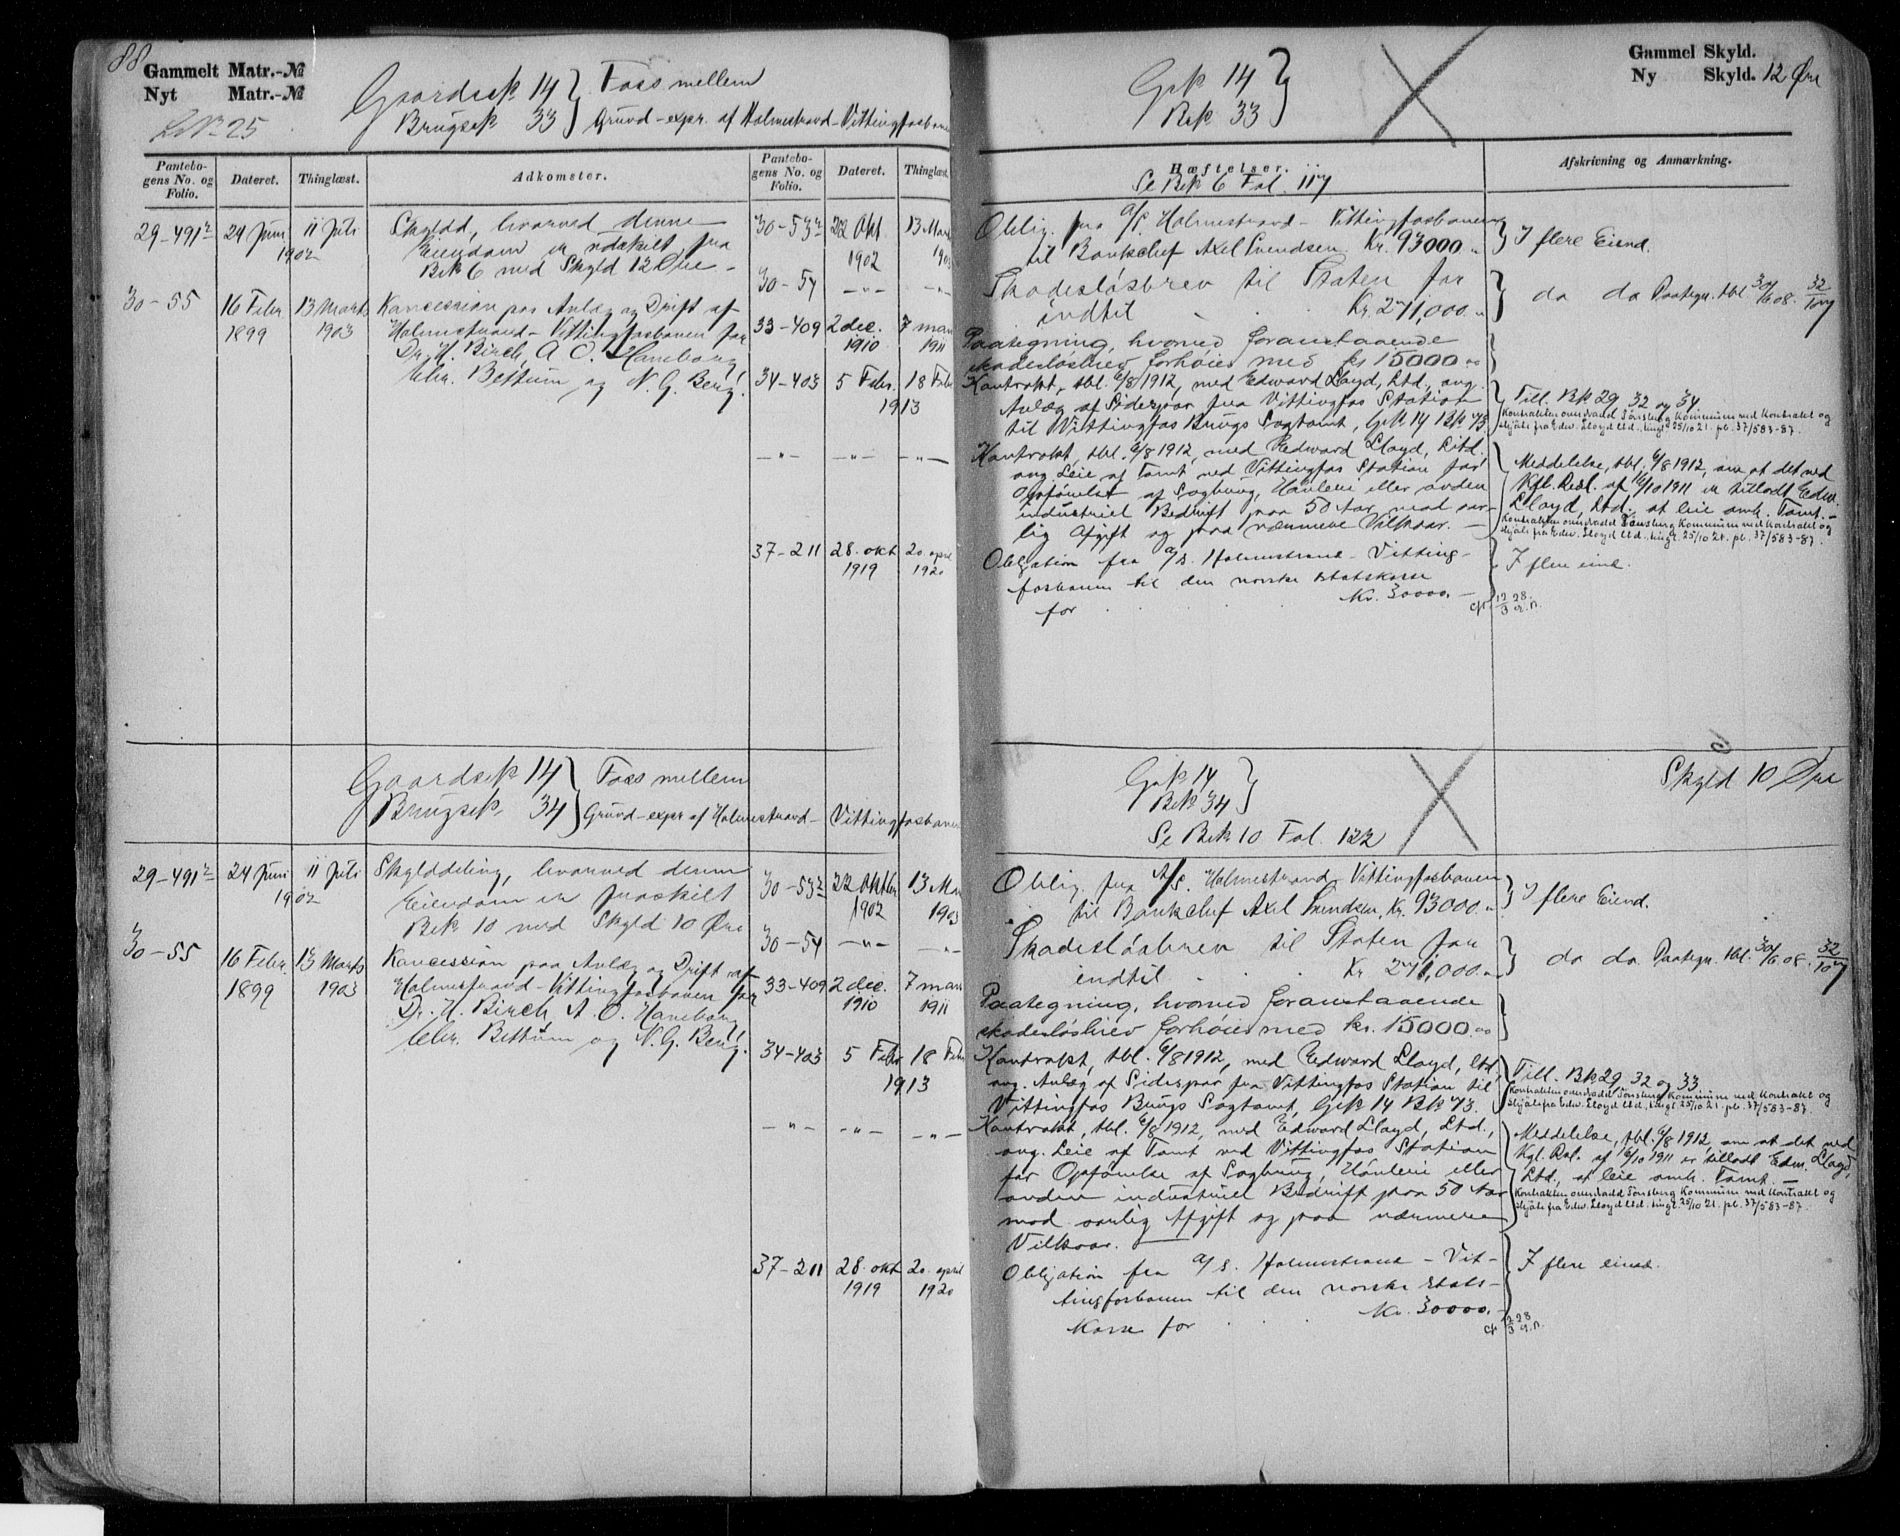 88
Gammelt Matr.-№
Nyt Matr.-№
LNr 25
Gaardsnr 14 } Foss mellem
Brugsnr 33 } Grund-expr. af Holmestrand-Vittingfosbanen
Pantebogens No. og Folio. Dateret. Thinglæst. Adkomster. Pantebogens No. og Folio. Dateret. Thinglæst.
29-491² 24 Juni 1902 11 Juli Skyldd, hvorved denne
Eiendom er udskilt fra
Bnr 6 med Skyld 12 Øre -
30-55 16 Febr 1899 13 Marts 1903 Koncession paa Anlæg og Drift af
Holmestrand-Vittingfosbanen for
Dr. H. Birch, A. O. Haneborg
Chr. Bettum og N. G. Berg!
30-53² 22 Okt 1902 13 Mar 1903
30-54 -"- -"-
33-409 2 dec. 1910 7 mars 1911
34-403 5 Febr. 18 Febr 1913
-"- -"- -"-
37-211 28. okt 1919 20. april 1920
Gnr 14 }
Bnr 33 }
Gammel Skyld.
Ny Skyld. 12 Øre
Hæftelser. Afskrivning og Anmærkning.
Se Bnr 6 Fol. 117
Oblig. fra A/S. Holmestrand-Vittingfosbanen
til Bankchef Axel Svendsen. Kr. 93000 } I flere Eiend.
Skadesløsbrev til Staten for
indtil . . Kr. 271,000 } do do Paategn. tbl. 30/6 08. 32/107
Paategning, hvorved foranstaaende
skadesløsbrev forhøies med kr 15000 00
Kontrakt, tbl. 6/8 1912, med Edward Lloyd, Ltd., ang.
Anlæg af Sidespor fra Vittingfos Station
til Vittingfos Brugs Sagtomt, Gnr 14 Bnr 73.
Till. Bnr 29, 32 og 34
Kontrakten overdradd Tønsberg Kommune med Kontrakt og
skjøte fra Edw. Lloyd Ltd. tingl. 25/10 21. pb. 37/583-87.
Kontrakt, tbl. 6/8 1912, med Edward Lloyd, Ltd.
ang. Leie af Tomt ved Vittingfos Station for
Opførelse af Sagbrug, Høvleri eller anden
industriel Bedrift paa 50 Aar mod aar-
lig Afgift og paa nærmere Vilkaar. -
Meddelelse, tbl. 6/8 1912, om at det ved
Kgl. Resl. af 16/10 1911 er tilladt Edw.
Lloyd, Ltd. at leie omh. Tomt. -
Kontrakten overdradd Tønsberg Kommune med Kontrakt og
skjøte fra Edw. Lloyd Ltd. tingl. 25/10 21. pb. 37/583-87.
Obligation fra A/S. Holmestrand-Vitting-
fosbanen til den norske statskasse
for . . . Kr. 30000. -
I flere eiend.
Gaardsnr 14 } Foss mellem
Brugsnr. 34 } Grund-expr af Holmestrand-Vittingfosbanen
29-491² 24 Juni 1902 11 Juli Skylddeling, hvorved denne
Eiendom er fraskilt
Bnr 10 med Skyld 10 Øre
30-55 16 Febr 1899 13 Marts 1903 Koncession paa Anlæg og Drift af
Holmestrand-Vittingfosbanen for
Dr. H. Birch, A. O. Haneborg
Chr. Bettum og N. G. Berg!
30-53² 22 Oktbr 1902 13 Mar 1903
30-54 -"- -"-
33-409 2 dec. 1910 7 mars 1911
34-403 5 Febr 18 Febr 1913
-"- -"- -"-
37-211 28. okt 1919 20. april 1920
Gnr 14 }
Bnr 34 }
Skyld 10 Øre
Se Bnr 10 Fol. 122
Oblig. fra A/S. Holmestrand-Vittingfosbanen
til Bankchef Axel Svendsen, Kr. 93000 } I flere Eiend.
Skadesløsbrev til Staten for
indtil . . . Kr 271,000 } do do. Paategn. tbl. 30/6 08. 32/107
Paategning, hvorved foranstaaende
skadesløsbrev forhøies med kr. 15000 00
Kontrakt, tbl. 6/8 1912, med Edward Lloyd, Ltd,
ang. Anlæg af Sidespor fra Vittingfos Station til
Vittingfos Brugs Sagtomt, Gnr 14 Bnr 73.
Till. Bnr 29, 32 og 33
Kontrakten overdradd Tønsberg Kommune med Kontrakt og
skjøte fra Edw. Lloyd Ltd. tingl. 25/10 21. pb. 37/583-87
Kontrakt, tbl. 6/8 1912, med Edward Lloyd, Ltd.,
ang. Leie af Tomt ved Vittingfos Station
for Opførelse af Sagbrug, Høvleri eller
anden industriel Bedrift paa 50 Aar
mod aarlig Afgift og paa nærmere
Vilkaar.
Meddelelse, tbl. 6/8 1912, om at det ved
Kgl. Resl. af 16/10 1911 er tilladt Edw. Lloyd,
Ltd., at leie omh. Tomt. -
Kontrakten overdradd Tønsberg Kommune med Kontrakt og
skjøte fra Edw. Lloyd Ltd. tingl. 25/10 21. pb. 37/583-87.
Obligation fra A/S. Holmestrand - Vit-
tingfosbanen til den norske stats-
kasse for . . . Kr. 30000. -
I flere eiend.